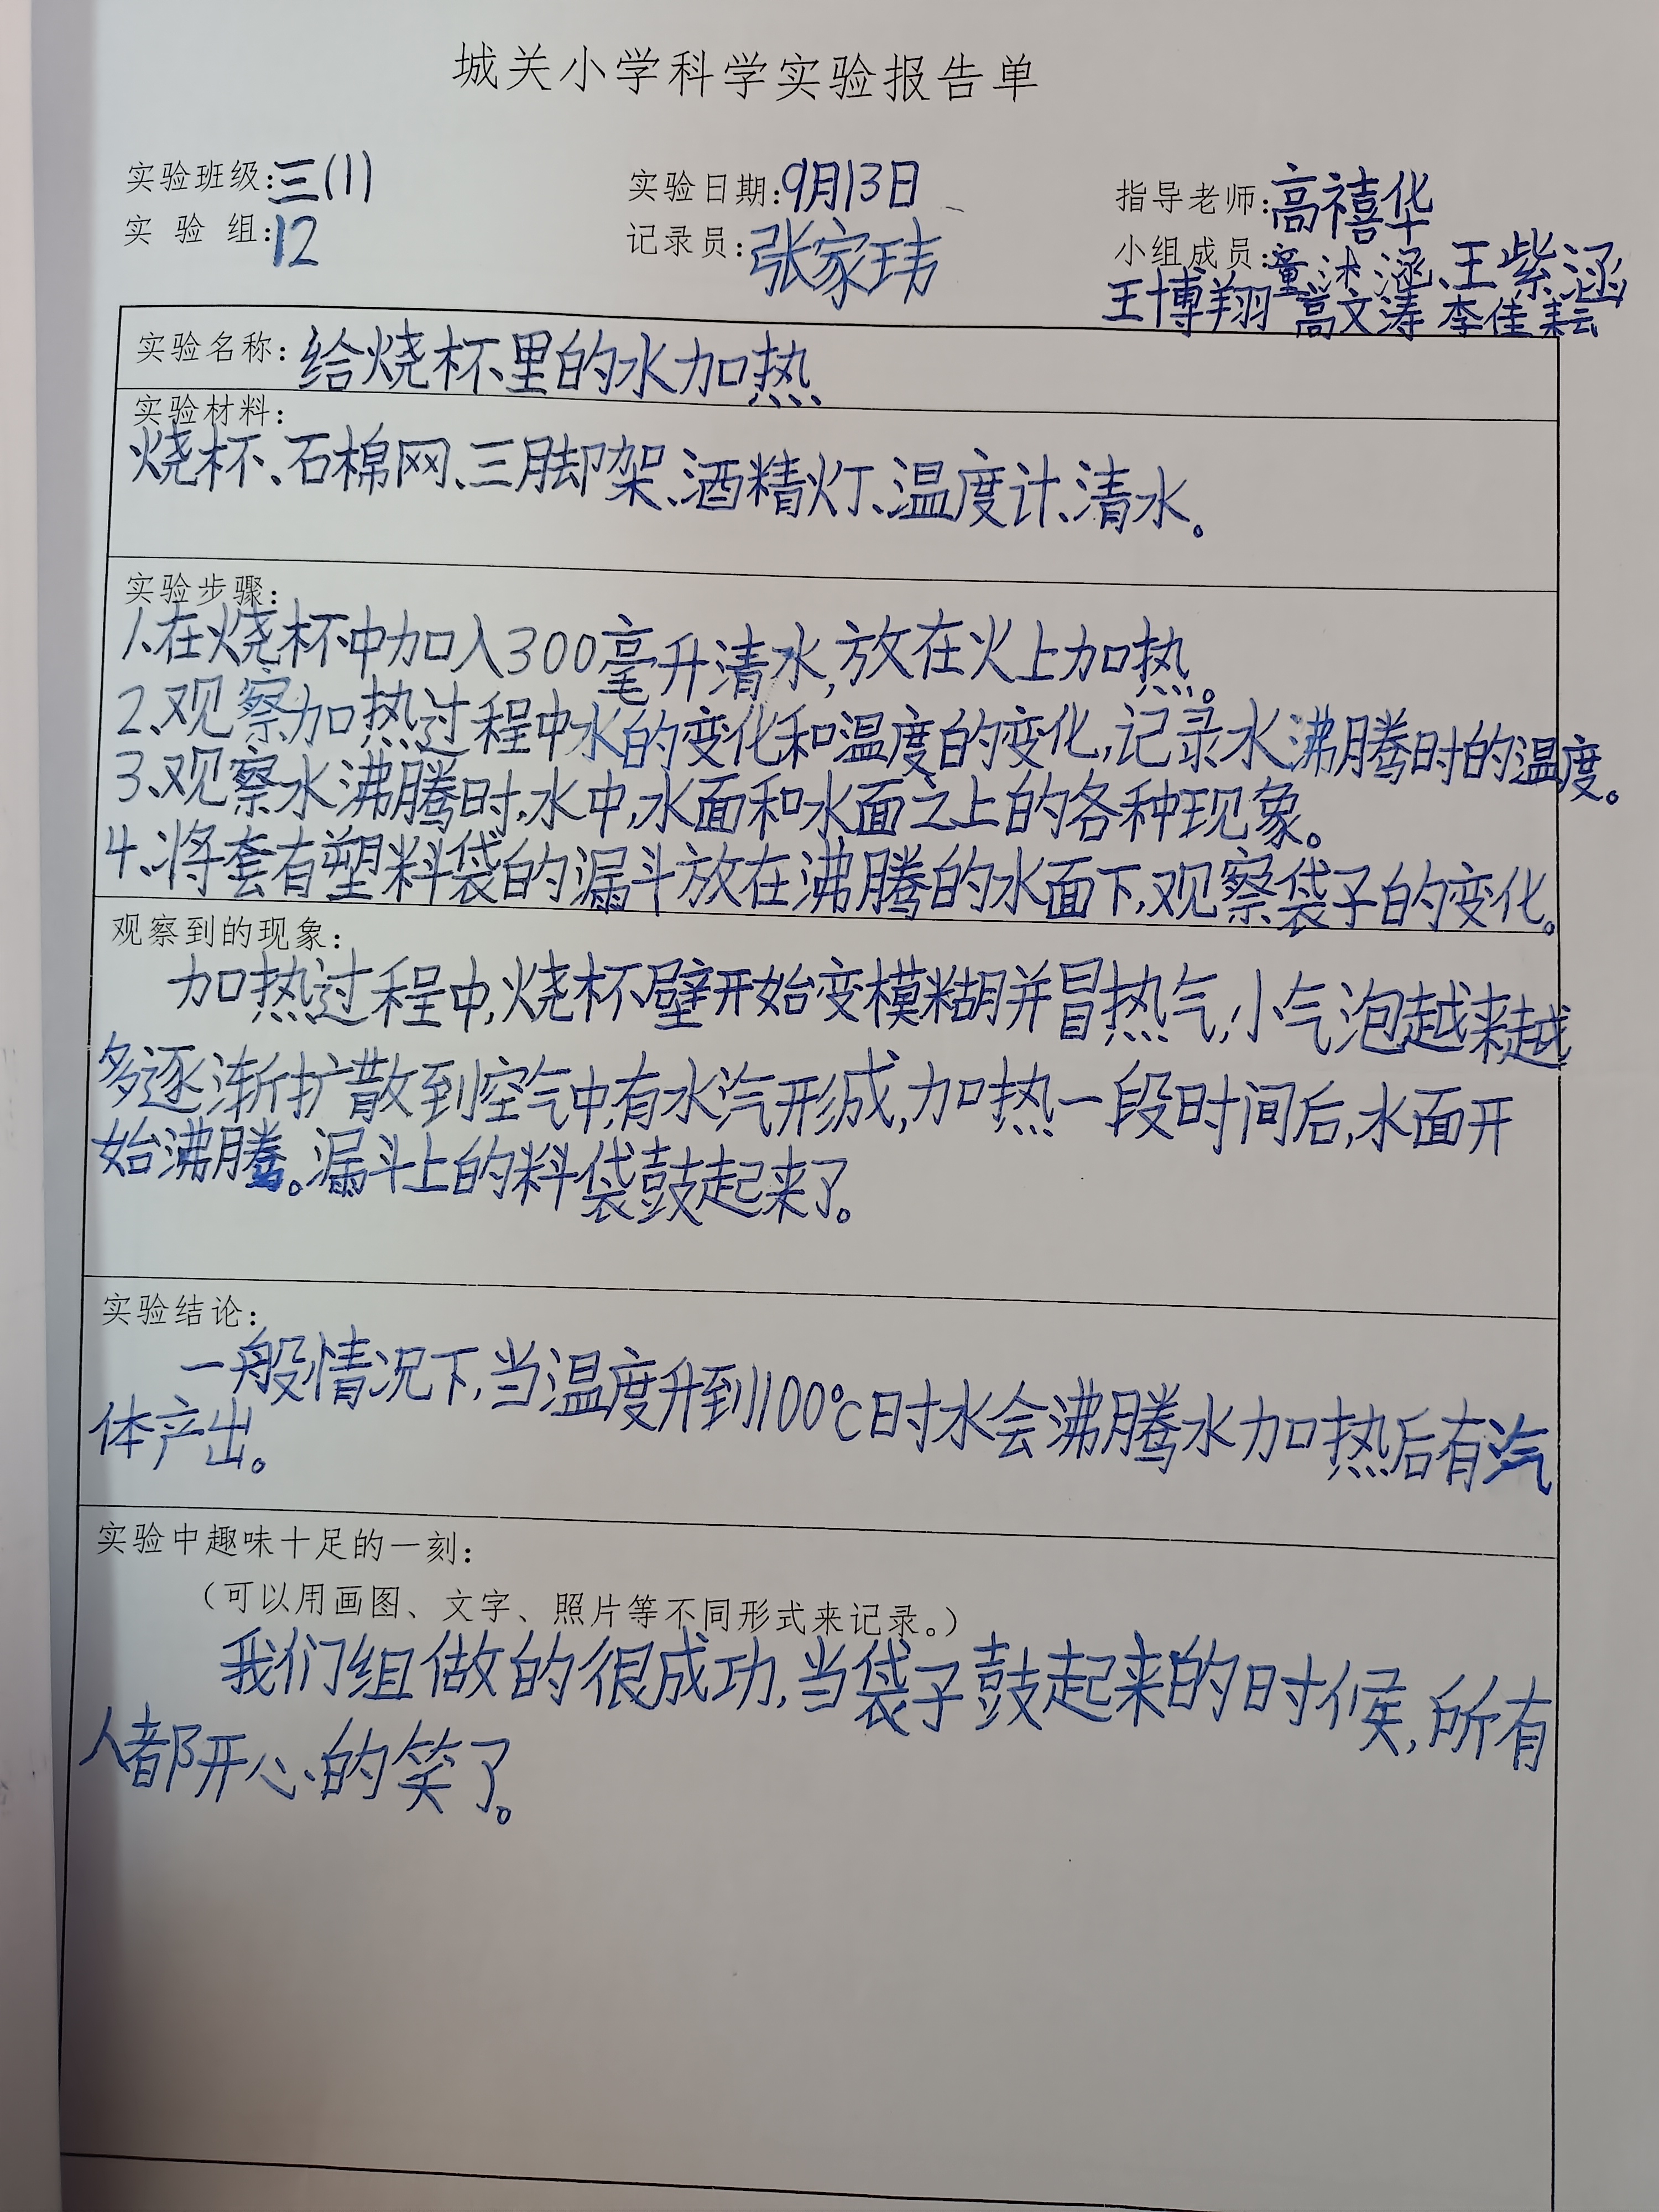 城关小学科学实验报告单
实验班级:三(1) 实验日期:9月13日 指导老师:高禧华
实验组:12 记录员:张家玮 小组成员:童沐涵、王紫涵
王博翔 高文涛 李佳耘
实验名称:给烧杯里的水加热
实验材料:
烧杯、石棉网、三脚架、酒精灯、温度计、清水。
实验步骤:
1、在烧杯中加入300毫升清水,放在火上加热。
2、观察加热过程中水的变化和温度的变化,记录水沸腾时的温度。
3、观察水沸腾时,水中,水面和水面之上的各种现象。
4、将套有塑料袋的漏斗放在沸腾的水面下,观察袋子的变化。
观察到的现象:
加热过程中,烧杯壁开始变模糊并冒热气,小气泡越来越
多逐渐扩散到空气中,有水汽形成,加热一段时间后,水面开
始沸腾。漏斗上的料袋鼓起来了。
实验结论:
一般情况下,当温度升到100℃时水会沸腾水加热后有汽
体产出。
实验中趣味十足的一刻:
(可以用画图、文字、照片等不同形式来记录。)
我们组做的很成功,当袋子鼓起来的时候,所有
人都开心的笑了。